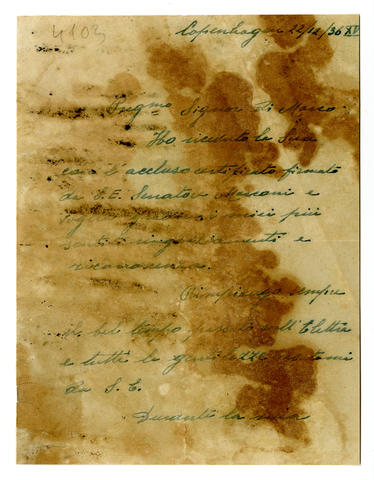 4103
Copenhagen 22/12/36 XV
Pregmo Signor Di Marco
Ho ricevuto la Sua
cara e l'accluso firmato
da S.E. Senatore Marconi e
miei più
sentiti ringraziamenti e
riconoscenza.
Rimpiango sempre
il bel tempo passato sull'Elettra
e tutte le gentilezze
da S.E.
Durante la mia